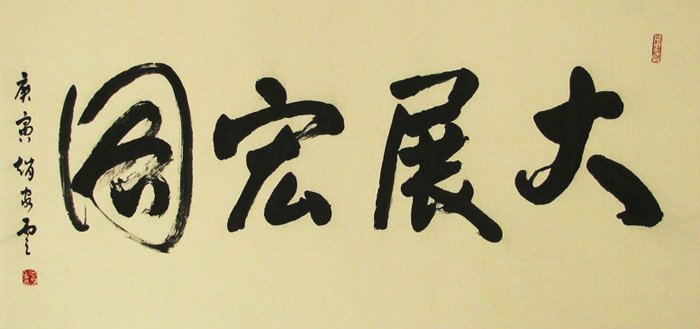 大展宏图
庚寅